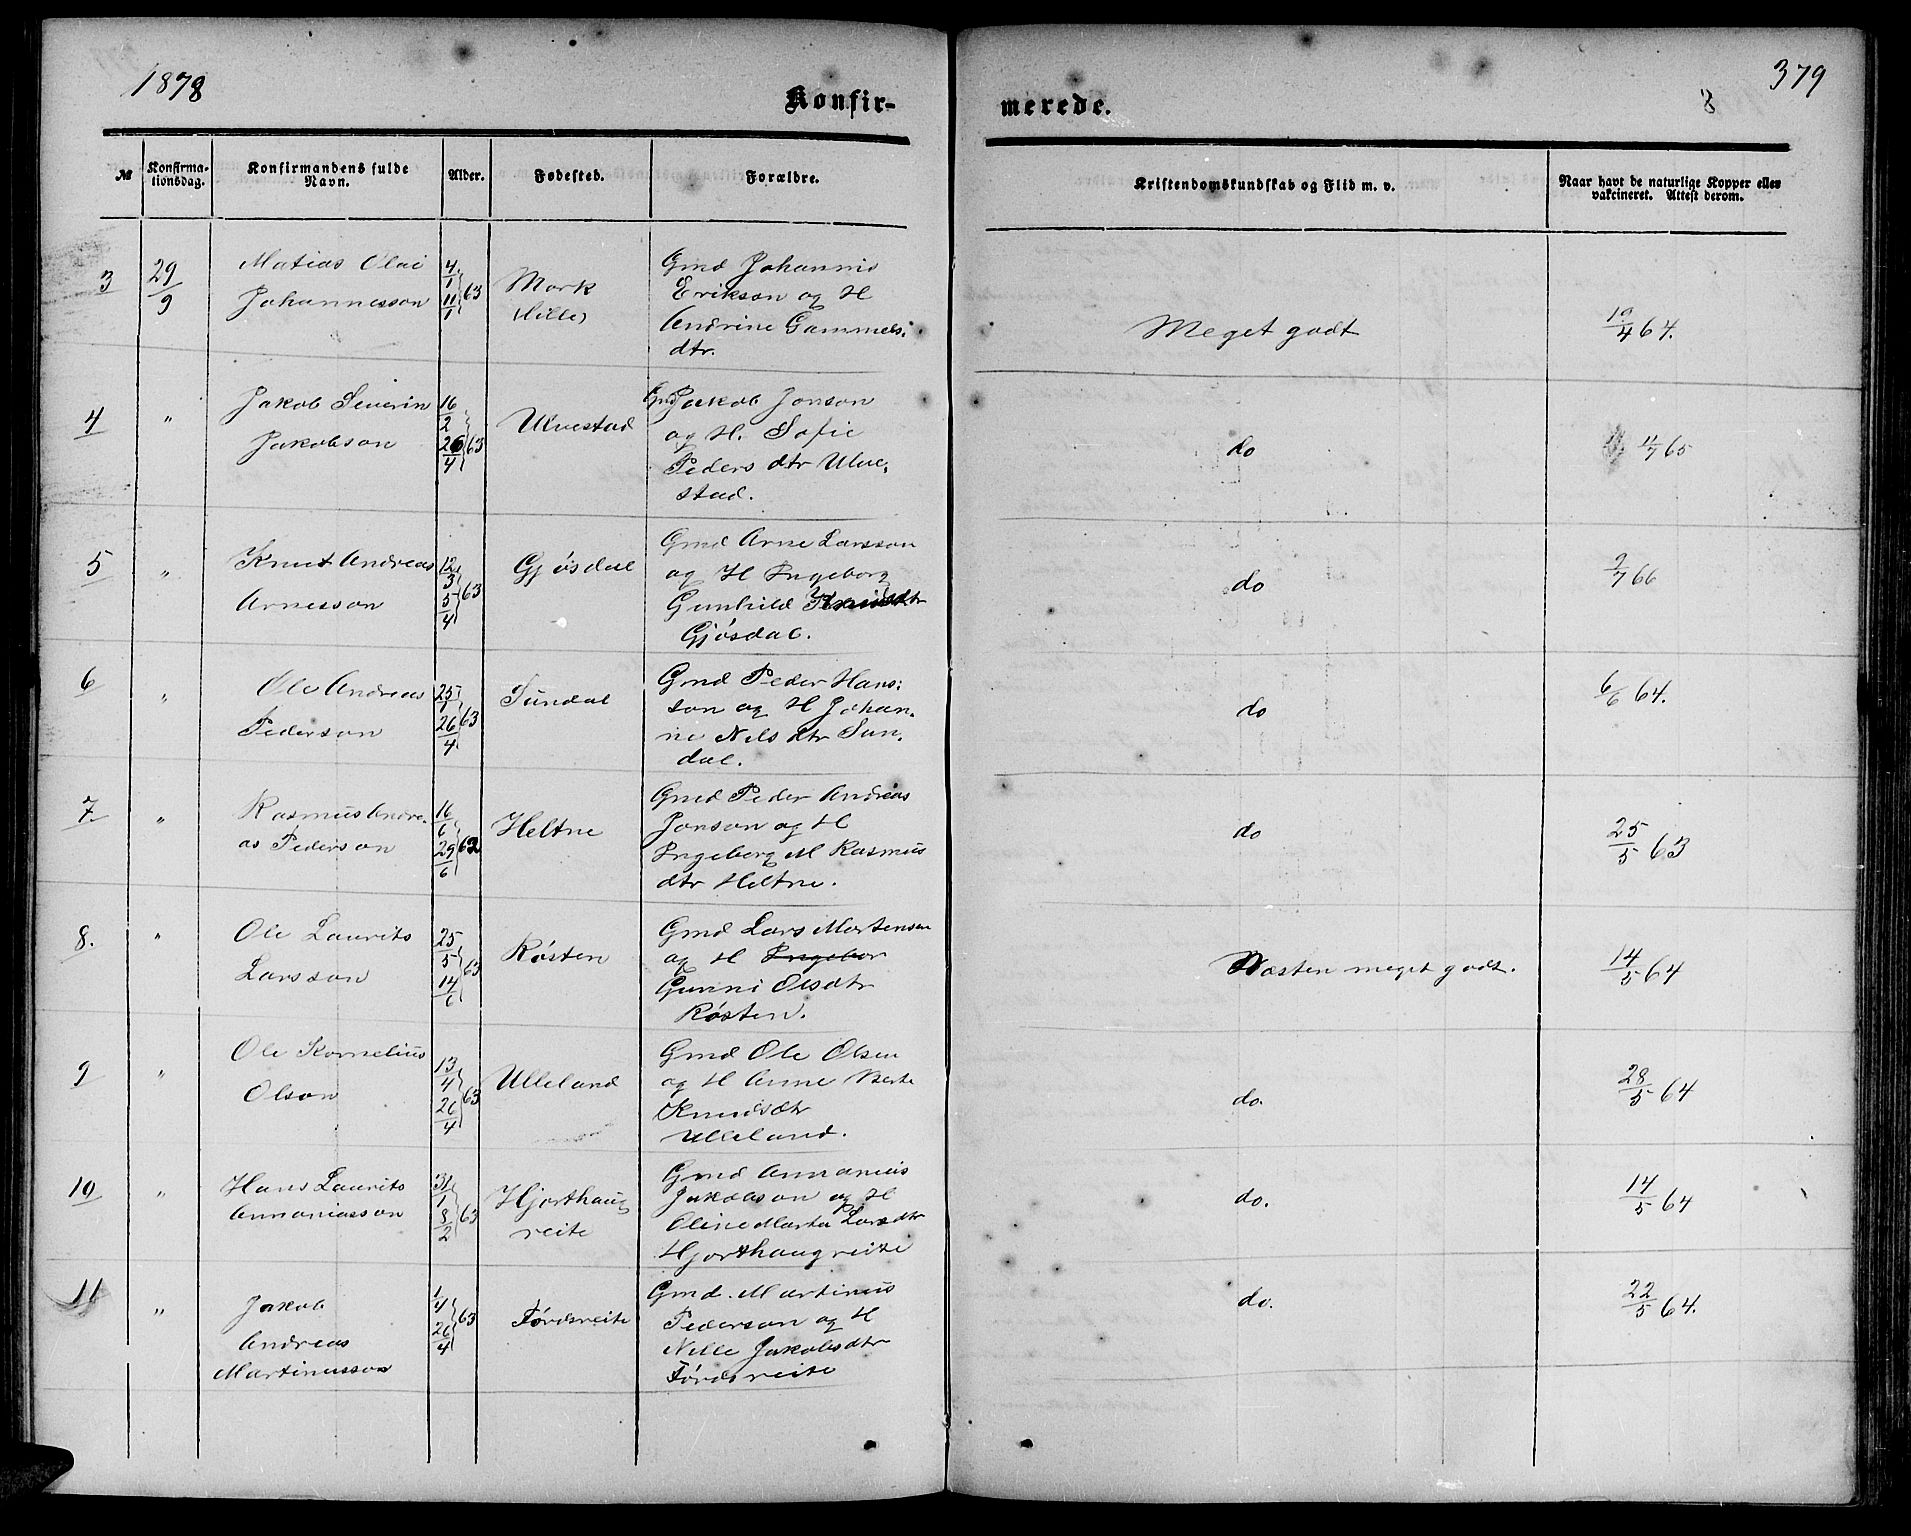 1878
379
8
Konfir-
merede.
№
Konfirma-
tionsdag.
Konfirmandens fulde
Navn.
Alder.
Fødested.
Forældre.
Kristendomskundskab og Flid m. v.
Naar havt de naturlige Kopper eller
vakcineret. Attest derom.
3
29/9
Matias Olai
Johannesson
4/1 11/1 63
Mork
(Hille)
Gmd Johannis
Erikson og H
Andrine Gammels:
dtr.
Meget godt
19/4 64.
4
"
Jakob Severin
Jakobson
16/2 26/4 63
Ulvestad
Gmd Jakob Jonson
og H. Sofie
Peders dtr Ulve-
stad.
do
4/7 65
5
"
Knut Andreas
Arnesson
12/3 5/4 63
Gjøsdal
Gmd Arne Larsson
og H Ingeborg
Gunhild Knudsdtr
Gjøsdal.
do
9/7 66
6
"
Ole Andreas
Pederson
25/1 26/4 63
Sundal
Gmd Peder Hans:
son og H Johan-
ne Nils dtr Sun-
dal.
do
6/6 64.
7.
"
Rasmus Andre-
as Pederson
16/6 29/6 62
Heltne
Gmd Peder Andreas
Jonson og H
Ingeborg M Rasmus
dtr Heltne.
do
25/5 63
8.
"
Ole Laurits
Larsson
25/5 14/6 63
Røsten
Gmd Lars Martenson
og H Ingebor
Gurine Olsdtr
Røsten.
Næsten meget godt.
14/5 64
9
"
Ole Kornelius
Olson
13/4 26/4 63
Ulleland
Gmd Ole Olsen
og H Anne Berte
Knudsdtr
Ulleland.
do.
28/5 64
10
"
Hans Laurits
Annaniasson
31/1 8/2 63
Hjorthaug
reite
Gmd Annanius
Jakobson og H
Oline Marta Larsdtr
Hjorthaugreite
do.
14/5 64
11
"
Jakob
Andreas
Martinusson
1/4 26/4 63
Førdsreite
Gmd. Martinus
Pederson og H
Nille Jakobsdtr
Førdsreite
do.
22/5 64.